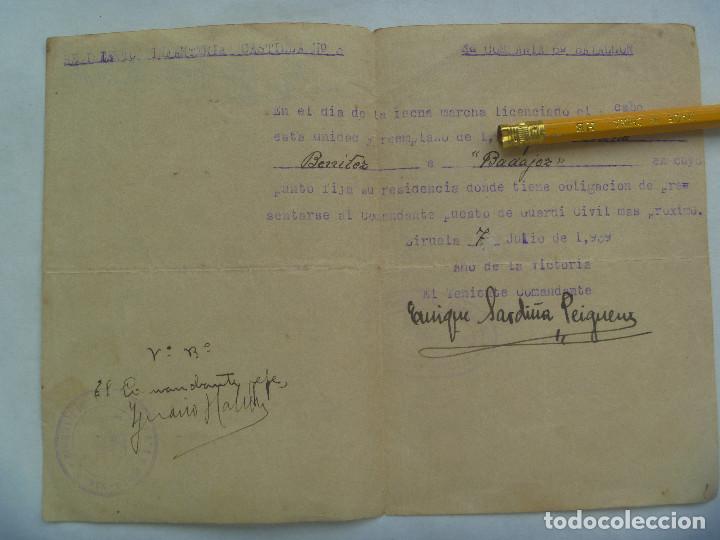 INFANTERIA CASTILLA Nº
COMPAÑIA BATALLON
En el dia de la fecha marcha licenciado el cabo
esta unidad y reemplazo de 1,
Benitez a "Badajoz" en cuyo
punto fija su residencia donde tiene obligacion de pre
sentarse al Comandante puesto de Guardi Civil mas proximo.
Siruela 7 Julio de 1,939
Año de la Victoria
El Teniente Comandante
Enrique Sardiña
Vº Bº
El Comandante jefe,
Ignacio
todocoleccion.net